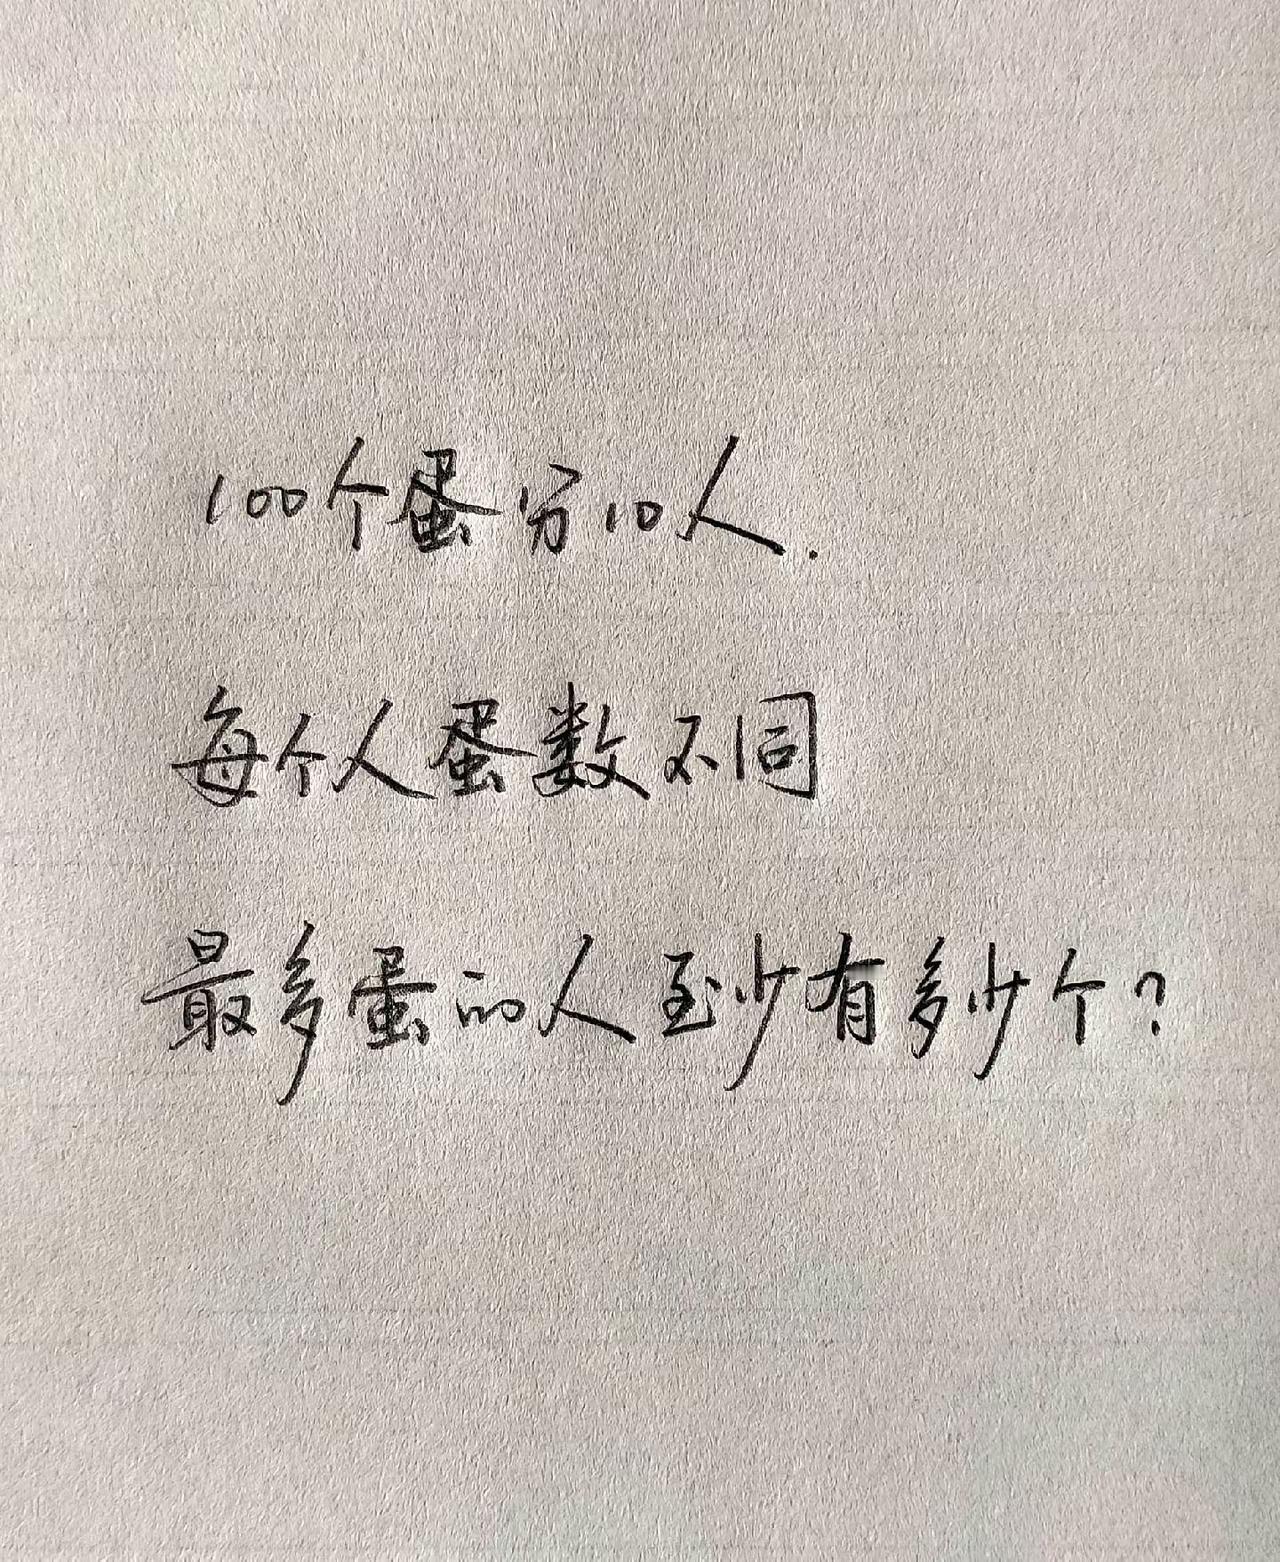 100个蛋分10人.
每个人蛋数不同
最多蛋的人至少有多少个?